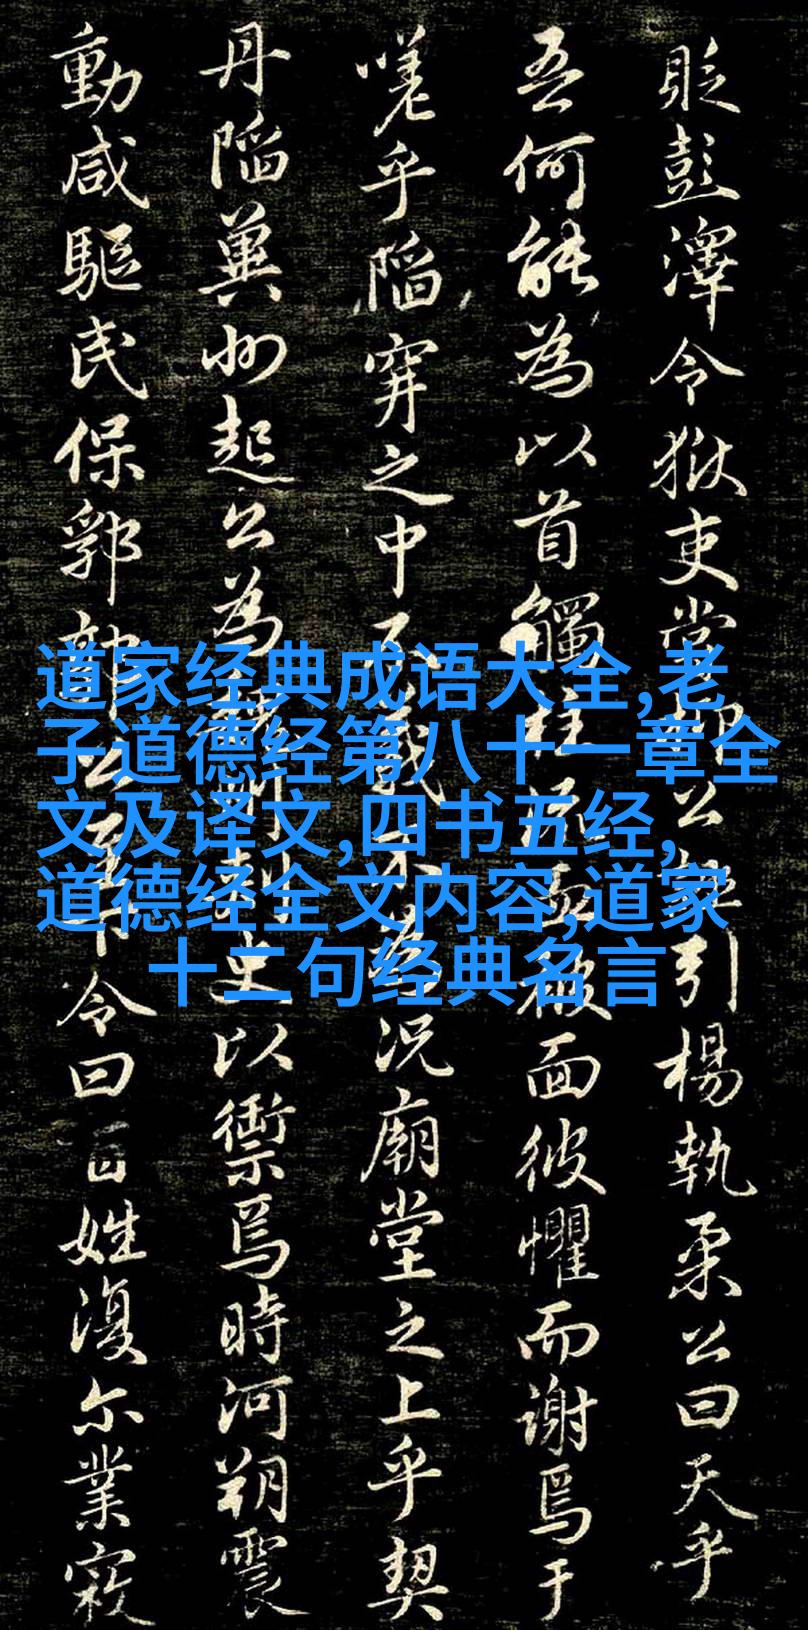 貶彭澤令狱吏嘗抑公引楊執柔公曰天乎
吾何能為以首觸柱面彼懼而謝焉于
嗟乎陷穽之中不義不為况廟堂之上乎契
丹陷冀州起公為刺史以禦焉時河朔震
動咸驅民保郛郭公至下令曰百姓復尔業寂
道家经典成语大全,老
子道德经第八十一章全
文及译文,四书五经,
道德经全文内容,道家
十二句经典名言